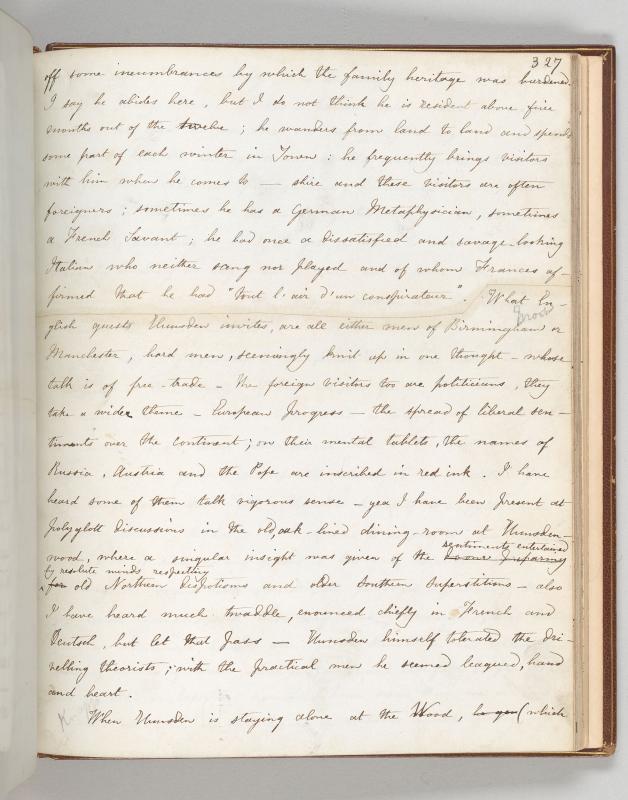 327
off some incumbrances by which the family heritage was burdened.
I say he abides here, but I do not think he is resident above five
months out of the twelve; he wanders from land to land and spends
some part of each winter in Town: he frequently brings visitors
with him when he comes to — shire and these visitors are often
foreigners; sometimes he has a German Metaphysician, sometimes
a French Savant; he had once a dissatisfied and savage-looking
Italian who neither sang nor played and of whom Frances af-
firmed that he had "tout l'air d'un conspirateur". What En-
glish guests Hunsden invites, are all either men of Birmingham or
Manchester, hard men, seemingly knit up in one thought – whose
talk is of free-trade – The foreign visitors too are politicians, they
take a wider theme – European progress – the spread of liberal sen-
timents over the continent; on their mental tablets, the names of
Russia, Austria and the Pope are inscribed in red ink. I have
heard some of them talk vigorous sense – yea I have been present at
polyglott discussions in the old, oak-lined dining-room at Hunsden-
wood, where a singular insight was given of the sentiments entertained
by resolute minds respecting
for old Northern Despotisms and older Southern Superstitions – also
I have heard much twaddle, enounced chiefly in French and
Deutsch, but let that pass — Hunsden himself tolerated the dri-
velling theorists; with the practical men he seemed leagued, hand
and heart.
When Hunsden is staying alone at the Wood, (which